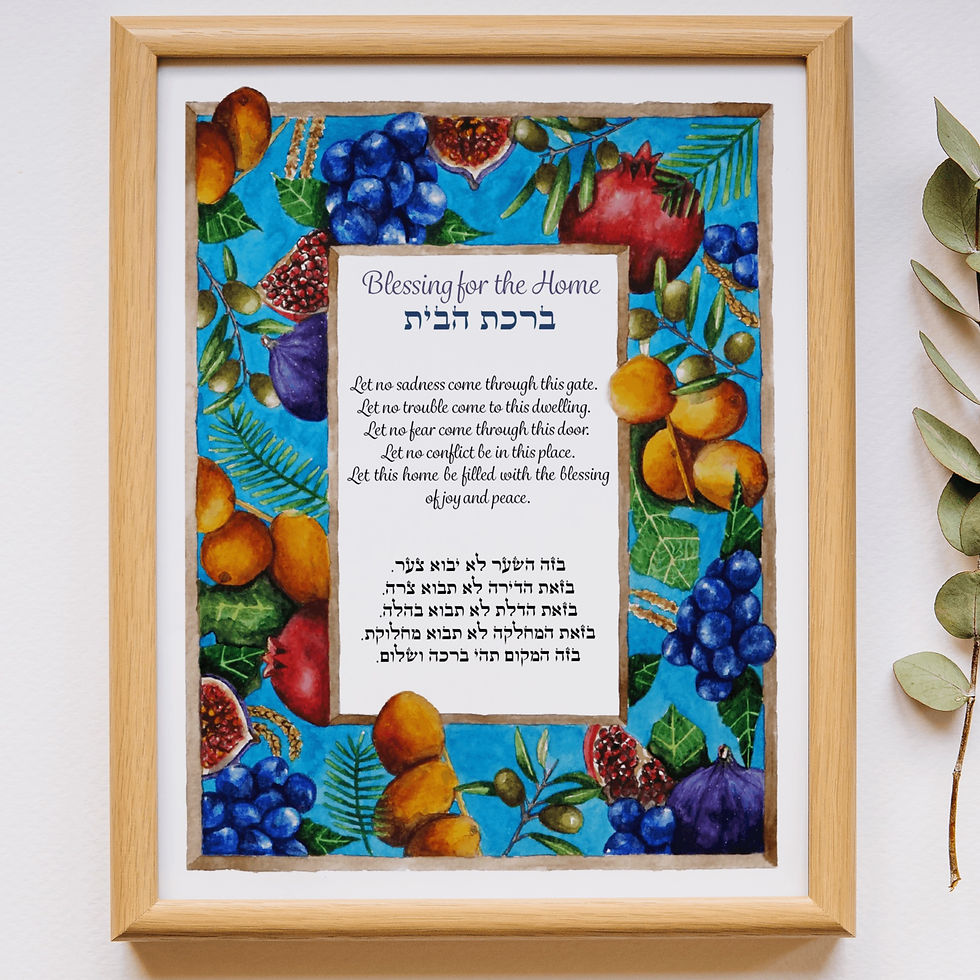 Blessing for the Home
ברכת הבית
Let no sadness come through this gate.
Let no trouble come to this dwelling.
Let no fear come through this door.
Let no conflict be in this place.
Let this home be filled with the blessing
of joy and peace.
בזה השער לא יבוא צער.
בזאת הדירה לא תבוא צרה.
בזאת הדלת לא תבוא בהלה.
בזאת המחלקה לא תבוא מחלוקת.
בזה המקום תהי ברכה ושלום.